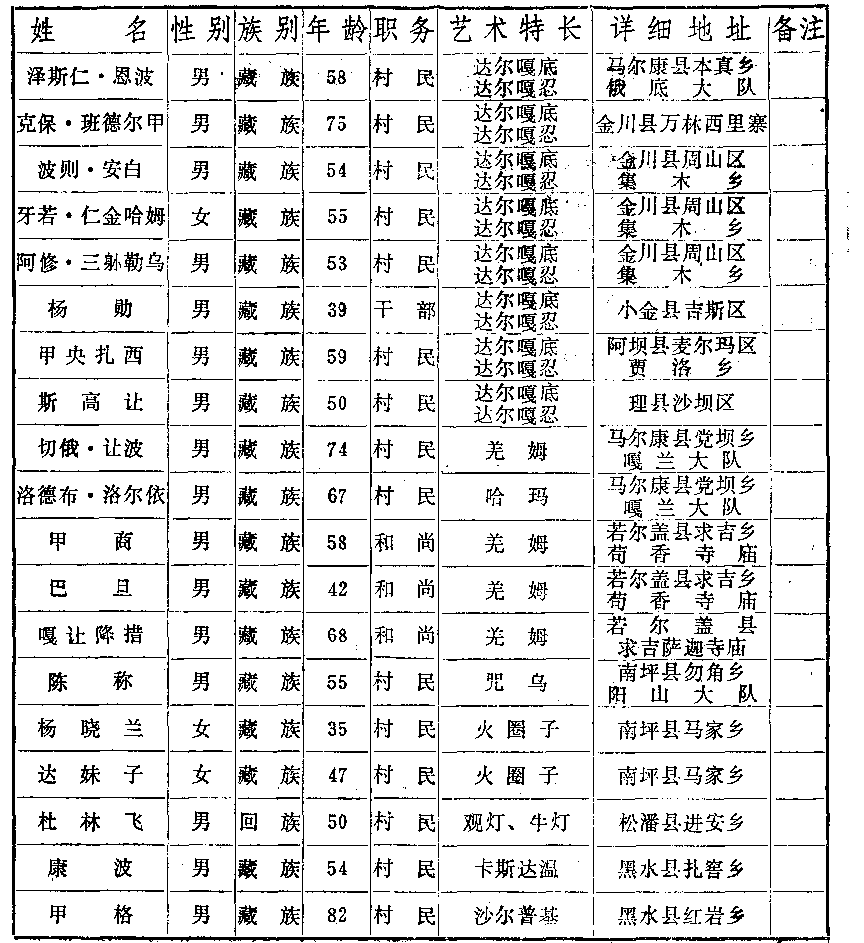 姓名 性别 族别 年龄 职务 艺术特长 详细地址 备注
泽斯仁·恩波 男 藏族 58 村民 达尔嘎底 达尔嘎忍 马尔康县本真乡 俄底大队
克保·班德尔甲 男 藏族 75 村民 达尔嘎底 达尔嘎忍 金川县万林西里寨
波则·安白 男 藏族 54 村民 达尔嘎底 达尔嘎忍 金川县周山区 集木乡
牙若·仁金哈姆 女 藏族 55 村民 达尔嘎底 达尔嘎忍 金川县周山区 集木乡
阿修·三躰勒乌 男 藏族 53 村民 达尔嘎底 达尔嘎忍 金川县周山区 集木乡
杨勋 男 藏族 39 干部 达尔嘎底 达尔嘎忍 小金县吉斯区
甲央扎西 男 藏族 59 村民 达尔嘎底 达尔嘎忍 阿坝县麦尔玛区 贾洛乡
斯高让 男 藏族 50 村民 达尔嘎底 达尔嘎忍 理县沙坝区
切俄·让波 男 藏族 74 村民 羌姆 马尔康县党坝乡 嘎兰大队
洛德布·洛尔依 男 藏族 67 村民 哈玛 马尔康县党坝乡 嘎兰大队
甲商 男 藏族 58 和尚 羌姆 若尔盖县求吉乡 苟香寺庙
巴旦 男 藏族 42 和尚 羌姆 若尔盖县求吉乡 苟香寺庙
嘎让降措 男 藏族 68 和尚 羌姆 若尔盖县 求吉萨迦寺庙
陈称 男 藏族 55 村民 咒乌 南坪县勿角乡 阳山大队
杨晓兰 女 藏族 35 村民 火圈子 南坪县马家乡
达妹子 女 藏族 47 村民 火圈子 南坪县马家乡
杜林飞 男 回族 50 村民 观灯、牛灯 松潘县进安乡
康波 男 藏族 54 村民 卡斯达温 黑水县扎窖乡
甲格 男 藏族 82 村民 沙尔普基 黑水县红岩乡